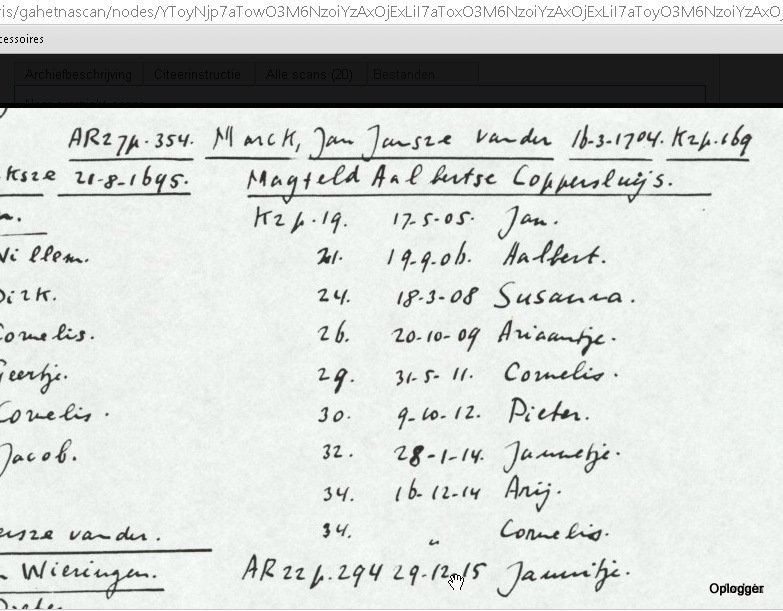 ris/gahetnascan/nodes/YToyNjp7aTowO3M6NzoiYzAxOjExLiI7aToxO3M6NzoiYzAxOjExLiI7aToyO3M6NzoiYzAxO
ccessoires
Archiefbeschrijving Citeerinstructie Alle scans (20) Bestanden
AR27p.354. Marck, Jan Jansze vander 16-3-1704. K2p.169
ksze 21-8-1695. Magteld Aalbertse Coppersluijs.
K2p.19. 17-5-05. Jan.
Willem. 21. 19-9-06. Aalbert.
Dirk. 24. 18-3-08 Susanna.
Cornelis. 26. 20-10-09 Ariaantje.
Geertje. 29. 31-5-11. Cornelis.
Cornelis. 30. 9-10-12. Pieter.
Jacob. 32. 28-1-14. Jannetje.
34. 16-12-14 Arij.
ersze vander. 34. " Cornelis.
Wieringen. AR22p.294 29-12-15 Jannitje.
Pieter